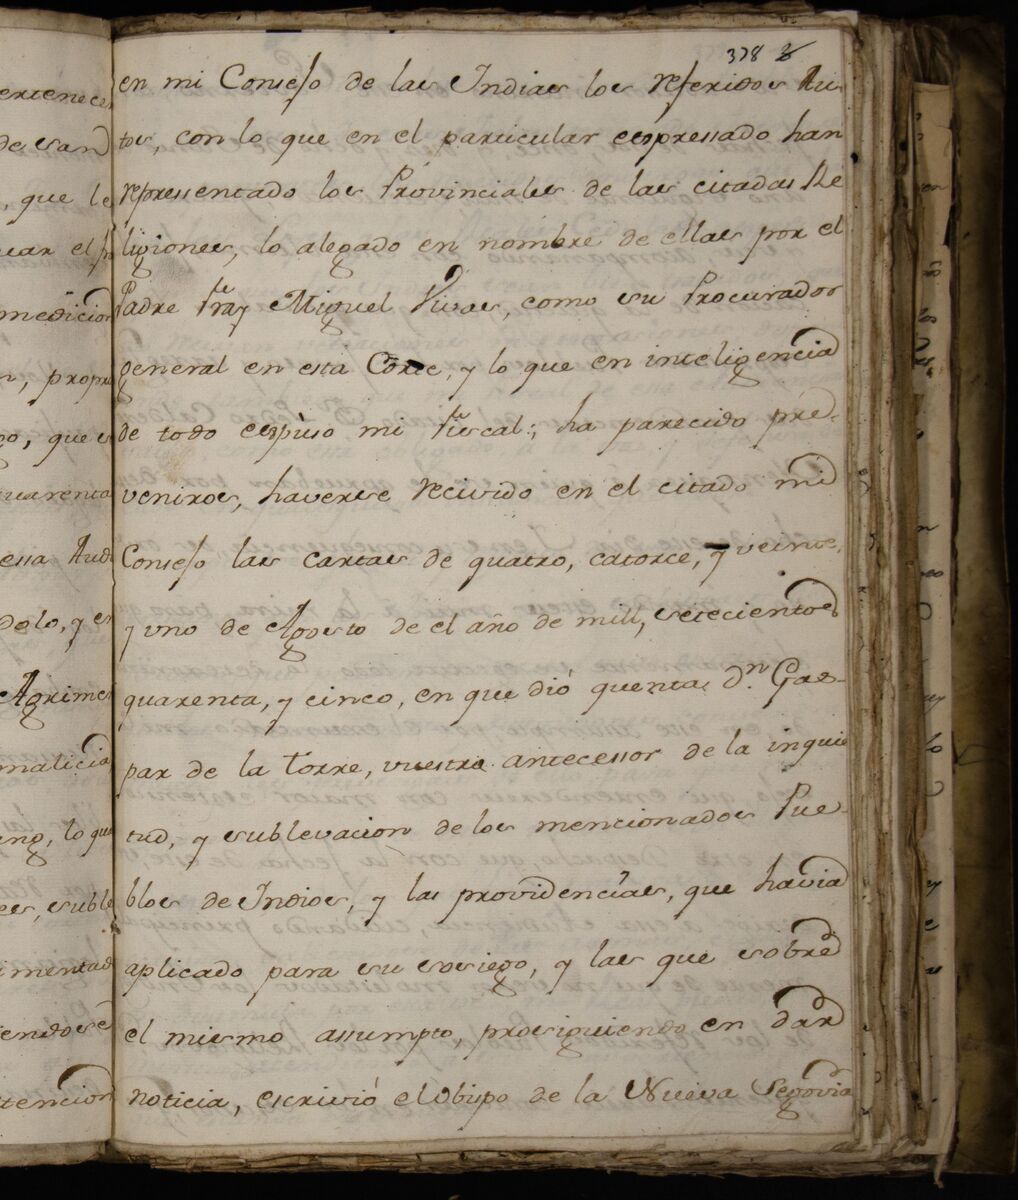 378
en mi Consejo de las Indias los referidos Au-
tos, con lo que en el particular expressado han
repressentado los Provinciales de las citadas Re
ligiones, lo alegado en nombre de ellas por el
Padre fray Miguel Vivas, como su Procurador
general en esta Corte, y lo que en inteligencia
de todo expuso mi fiscal; ha parecido pre-
veniros, haverse recivido en el citado mi
Consejo las cartas de quatro, catorce, y veinte,
y uno de Agosto de el año de mill, setecientos
quarenta, y cinco, en que dió quenta Dn. Gas-
par de la Torre, vuestro antecessor de la inquie
tud, y sublevacion de los mencionados Pue-
blos de Indios, y las providencias, que havia
aplicado para su sosiego, y las que sobre
el mismo assumpto, prosiguiendo en dar
noticia, escrivió el Obispo de la Nueva Segovia